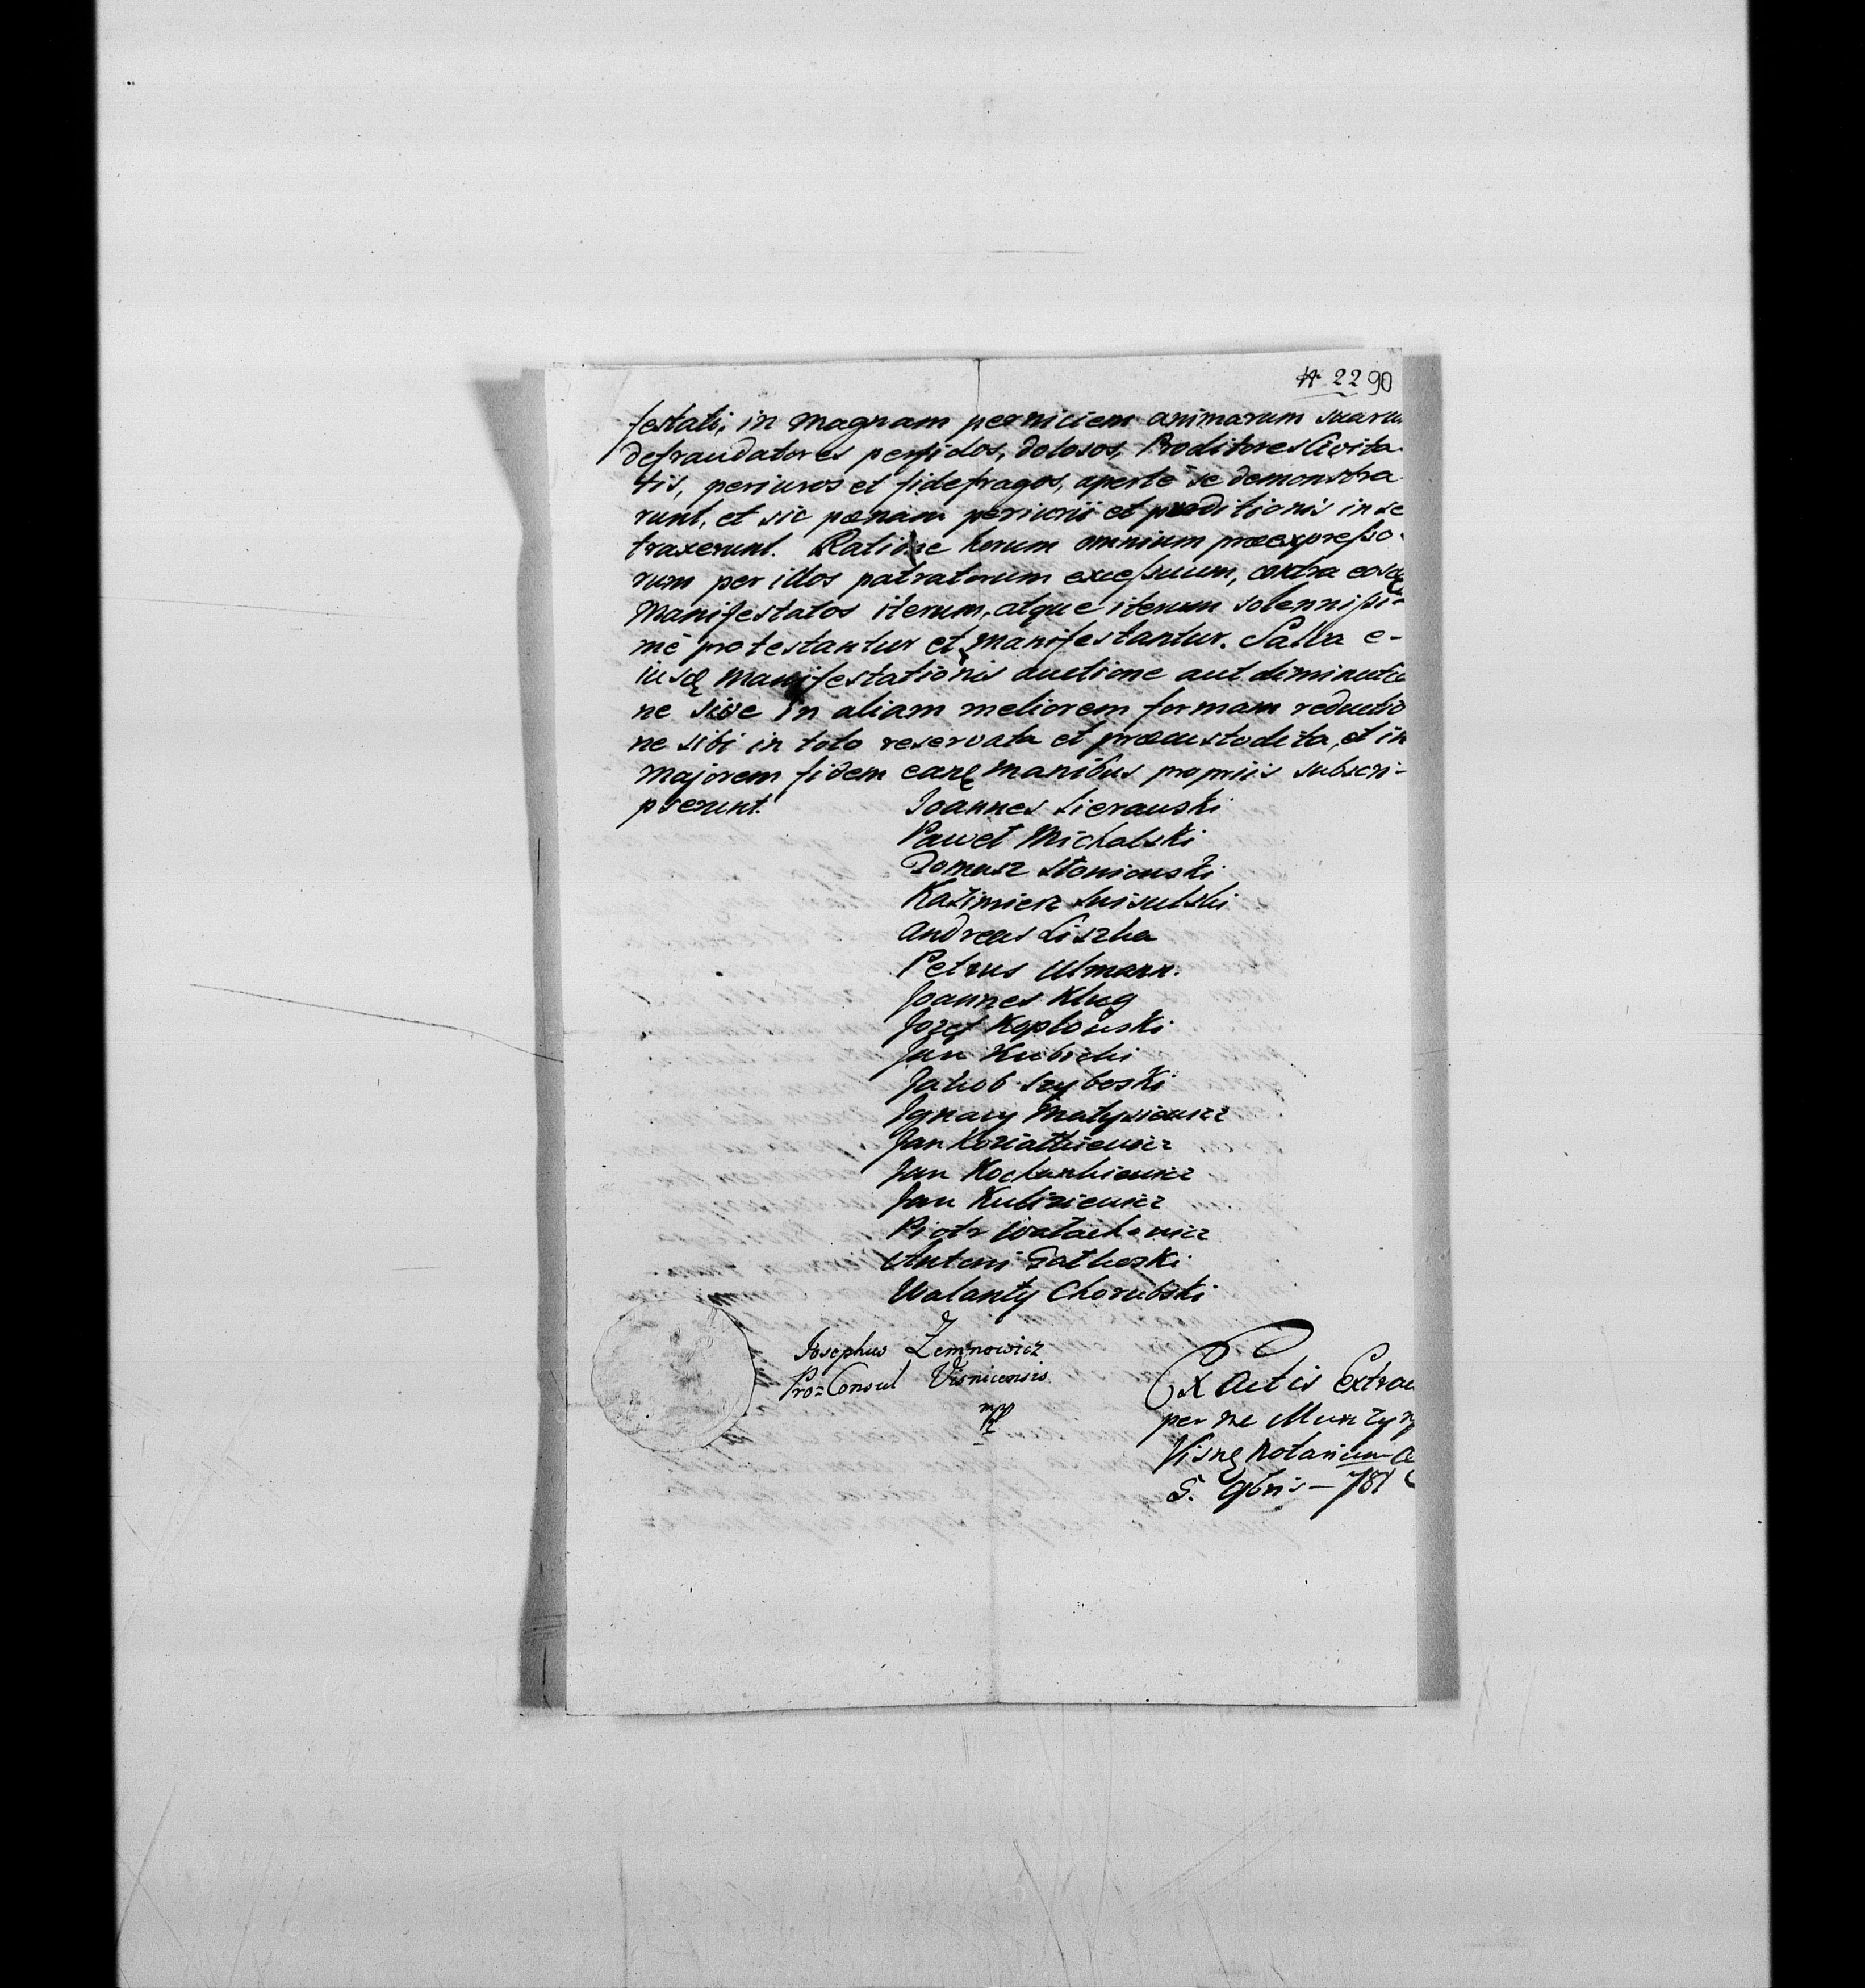 22 90
festati, in magnam perniciem animarum suaru
defraudatores perfidos, dolosos, Proditores Civita
tis, periuros et fidefragos, apertè se demonstra
runt, et sic pœnam periurii et proditionis in se
traxerunt. Ratione horum omnium præexpresso
rum per illos patratorum excessuum, contra eosdē
Manifestatos iterum, atque iterum solennissi-
mè protestantur et manifestantur. Salva e-
iusdē Manifestationis auctione aut diminutio
ne sive in aliam meliorem formam reductio
ne sibi in toto reservata et præcustodita, et in
majorem fidem eanē manibus propriis subscri-
pserunt.
Joannes Sierauski
Paweł Michalski
Tomasz Słoniouski
Kazimierz
Andreas Liszka
Petrus Ulmann.
Joannes Klug
Jozef Kopłouski
Jan Kubicki
Jakob Szyboski
Ignacy Matysiewicz
Jan Koziatkiewicz
Jan Kochankiewicz
Jan Kubiziewicz
Piotr Wałachowicz
Antoni
Walanty Chorubski
Josephus Zemnowicz
Pro=Consul Visnicensis
mpp
Ex Actis Extrac
per me
Visnē Notarium
S. 9bris — 781